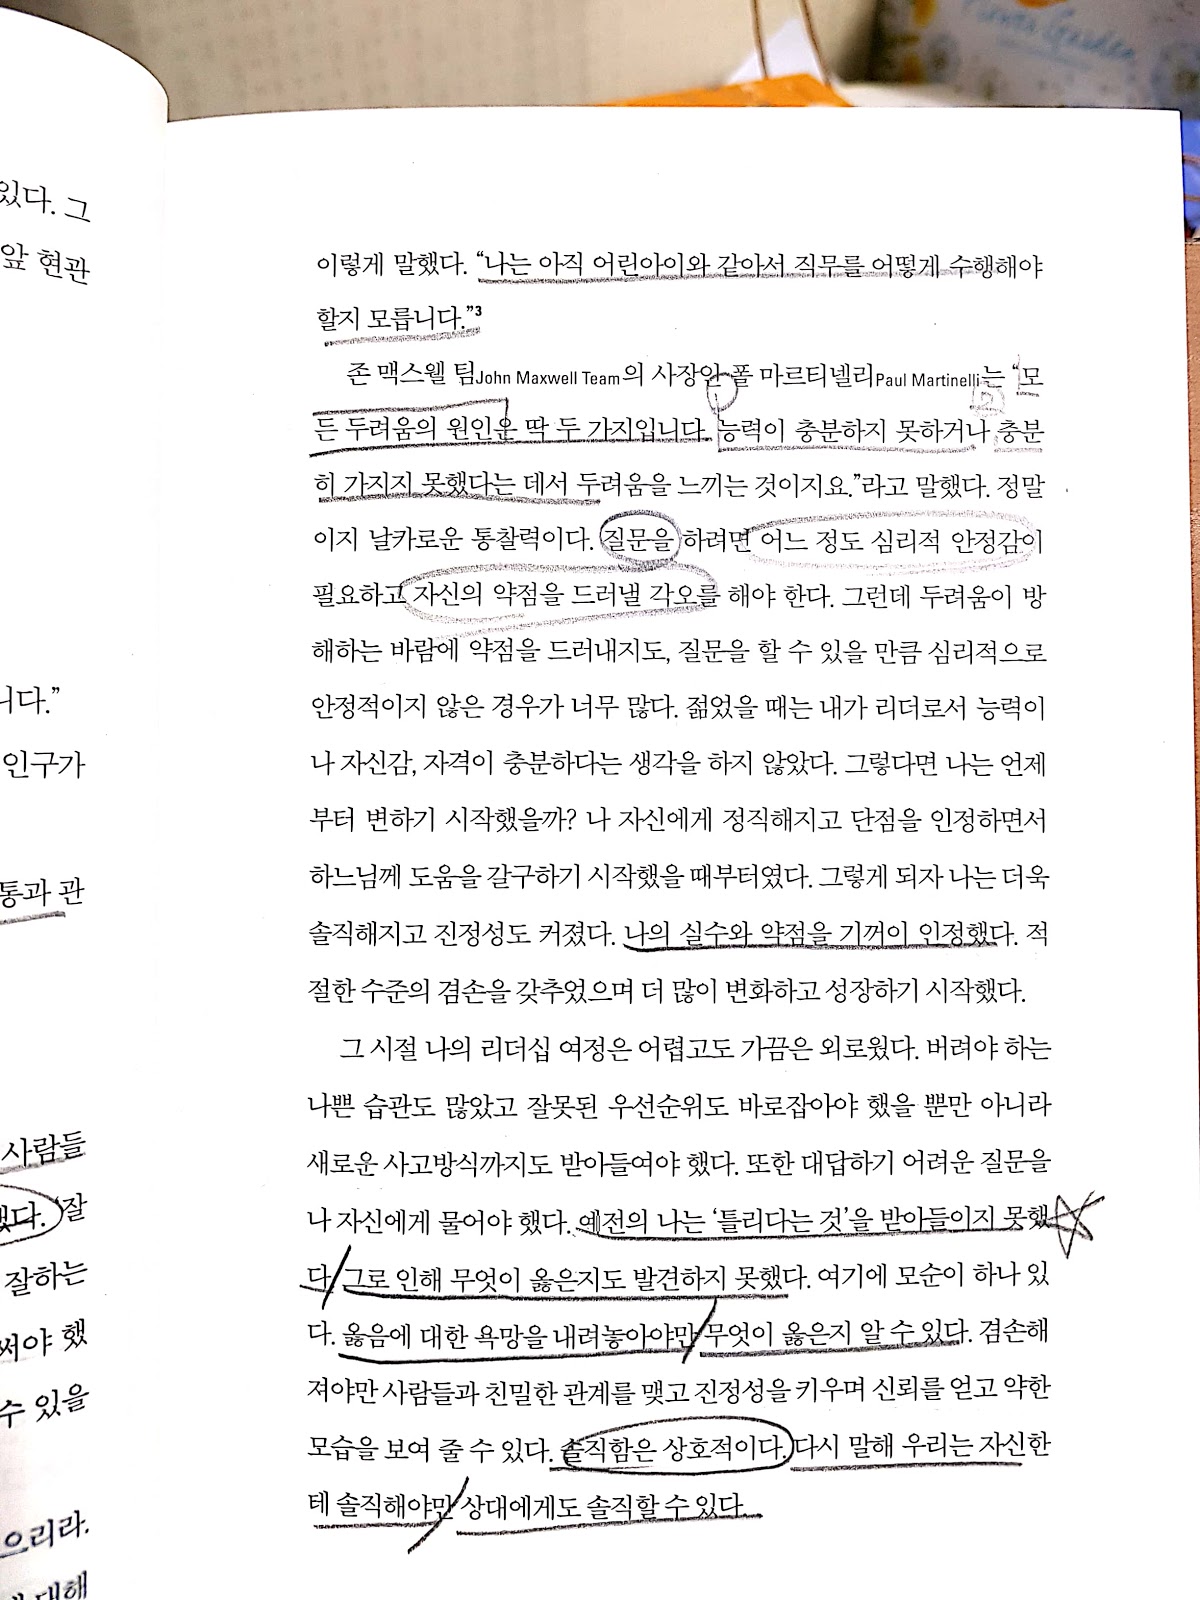 있다. 그
앞 현관
니다.”
인구가
통과 관
사람들
했다. ‘잘
잘하는
써야 했
수 있을
으리라.
대해
이렇게 말했다. “나는 아직 어린아이와 같아서 직무를 어떻게 수행해야
할지 모릅니다.”³
존 맥스웰 팀John Maxwell Team의 사장인 폴 마르티넬리Paul Martinelli는 “모
든 두려움의 원인은 딱 두 가지입니다. 능력이 충분하지 못하거나 충분
히 가지지 못했다는 데서 두려움을 느끼는 것이지요.”라고 말했다. 정말
이지 날카로운 통찰력이다. 질문을 하려면 어느 정도 심리적 안정감이
필요하고 자신의 약점을 드러낼 각오를 해야 한다. 그런데 두려움이 방
해하는 바람에 약점을 드러내지도, 질문을 할 수 있을 만큼 심리적으로
안정적이지 않은 경우가 너무 많다. 젊었을 때는 내가 리더로서 능력이
나 자신감, 자격이 충분하다는 생각을 하지 않았다. 그렇다면 나는 언제
부터 변하기 시작했을까? 나 자신에게 정직해지고 단점을 인정하면서
하느님께 도움을 갈구하기 시작했을 때부터였다. 그렇게 되자 나는 더욱
솔직해지고 진정성도 커졌다. 나의 실수와 약점을 기꺼이 인정했다. 적
절한 수준의 겸손을 갖추었으며 더 많이 변화하고 성장하기 시작했다.
그 시절 나의 리더십 여정은 어렵고도 가끔은 외로웠다. 버려야 하는
나쁜 습관도 많았고 잘못된 우선순위도 바로잡아야 했을 뿐만 아니라
새로운 사고방식까지도 받아들여야 했다. 또한 대답하기 어려운 질문을
나 자신에게 물어야 했다. 예전의 나는 ‘틀리다는 것’을 받아들이지 못했
다. 그로 인해 무엇이 옳은지도 발견하지 못했다. 여기에 모순이 하나 있
다. 옳음에 대한 욕망을 내려놓아야만 무엇이 옳은지 알 수 있다. 겸손해
져야만 사람들과 친밀한 관계를 맺고 진정성을 키우며 신뢰를 얻고 약한
모습을 보여 줄 수 있다. 솔직함은 상호적이다. 다시 말해 우리는 자신한
테 솔직해야만 상대에게도 솔직할 수 있다.